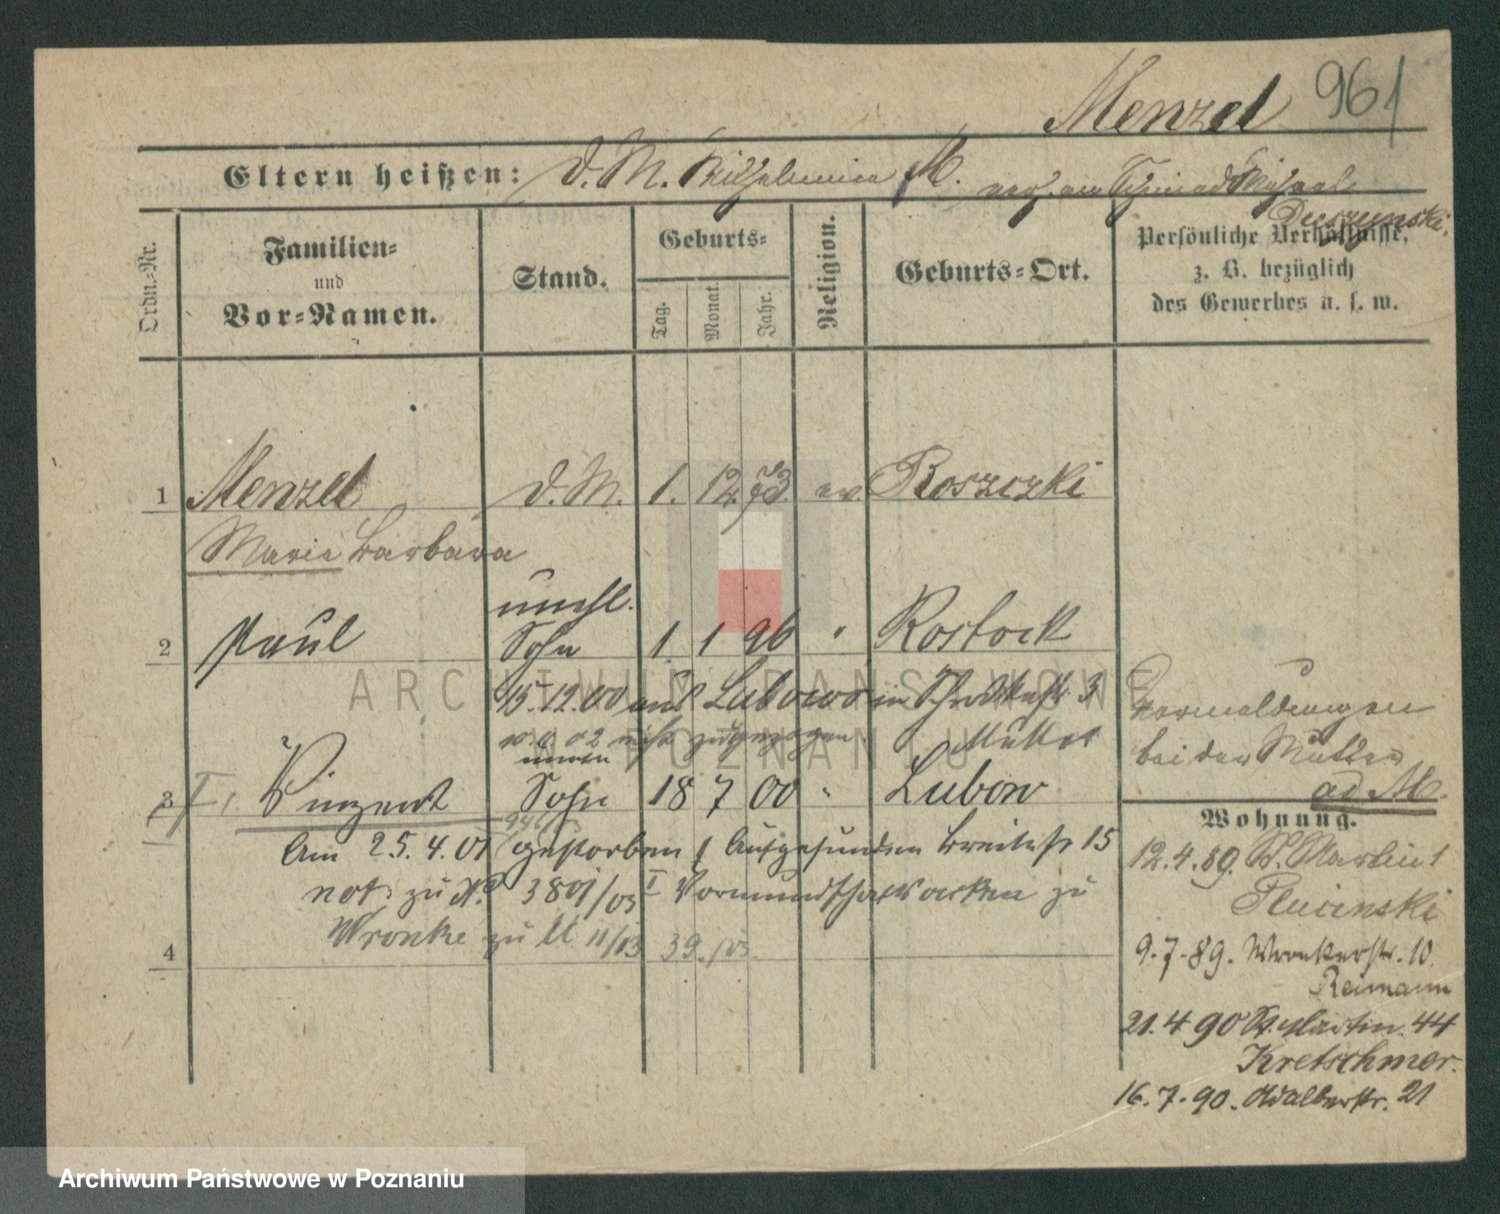 Menzel 961
Eltern heißen: d. M. Wilhelmine M.
Duszynski.
Ordn.-Nr.
Familien-
und
Vor-Namen.
Stand.
Geburts-
Tag.
Monat.
Jahr.
Religion.
Geburts-Ort.
Persönliche Verhältnisse,
z. B. bezüglich
des Gewerbes u. s. w.
1 Menzel d. M. 1. 12. 73. ev. Roszczki
Marie Barbara
unehl.
2 Paul Sohn 1 1 96 " Rostock
15.12.00 aus Lubowo in 3
nicht zugezogen Mutter
3 I. Vinzent Sohn 18 7 00 " Lubow
Am 25.4.01 gestorben
not. zu 3801/03 I zu
Wronke zu 11/03 39./03.
4
bei der Mutter
ad M.
Wohnung.
12.4.89. St. Martin 1
Plucinski
9.7.89. Wronkerstr. 10.
Reimann
21.4 90 St. Martin. 44
Kretschmer.
16.7.90. Adalbertstr. 21
ARCHIWUM PAŃSTWOWE
W POZNANIU
Archiwum Państwowe w Poznaniu